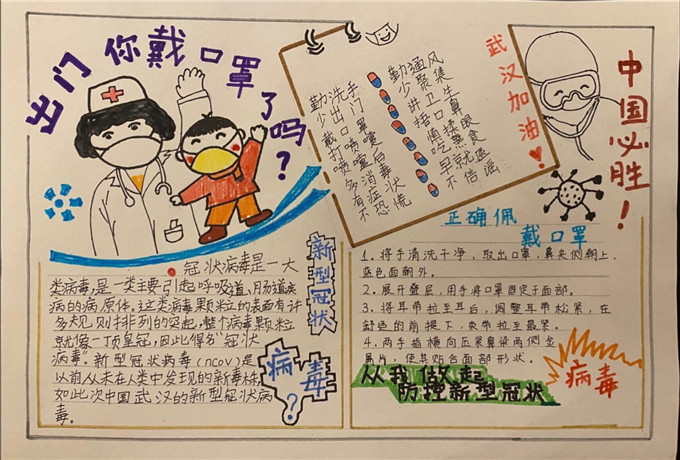 出门你戴口罩了吗?
勤洗手
少出门
戴口罩
打喷嚏
喷嚏后
多消毒
有症状
不恐慌
勤通风
少聚集
讲卫生
捂口鼻
慎揉眼
吃熟食
早就医
不信谣
武汉加油!
中国必胜!
冠状病毒是一大
类病毒,是一类主要引起呼吸道、肠道疾
病的病原体。这类病毒颗粒的表面有许
多规则排列的突起,整个病毒颗粒
就像一顶皇冠,因此得名“冠状
病毒”。新型冠状病毒(ncov)是
以前从未在人类中发现的新毒株,
如此次中国武汉的新型冠状病
毒。
新型冠状
病毒?
正确佩
戴口罩
1. 将手清洗干净,取出口罩,鼻夹侧朝上,
蓝色面朝外。
2. 展开叠层,用手将口罩固定于面部。
3. 将耳带拉至耳后,调整耳带松紧,在
舒适的前提下,束带拉至最紧。
4. 两手指横向压紧鼻梁两侧金
属片,使其贴合面部形状。
从我做起
防控新型冠状
病毒